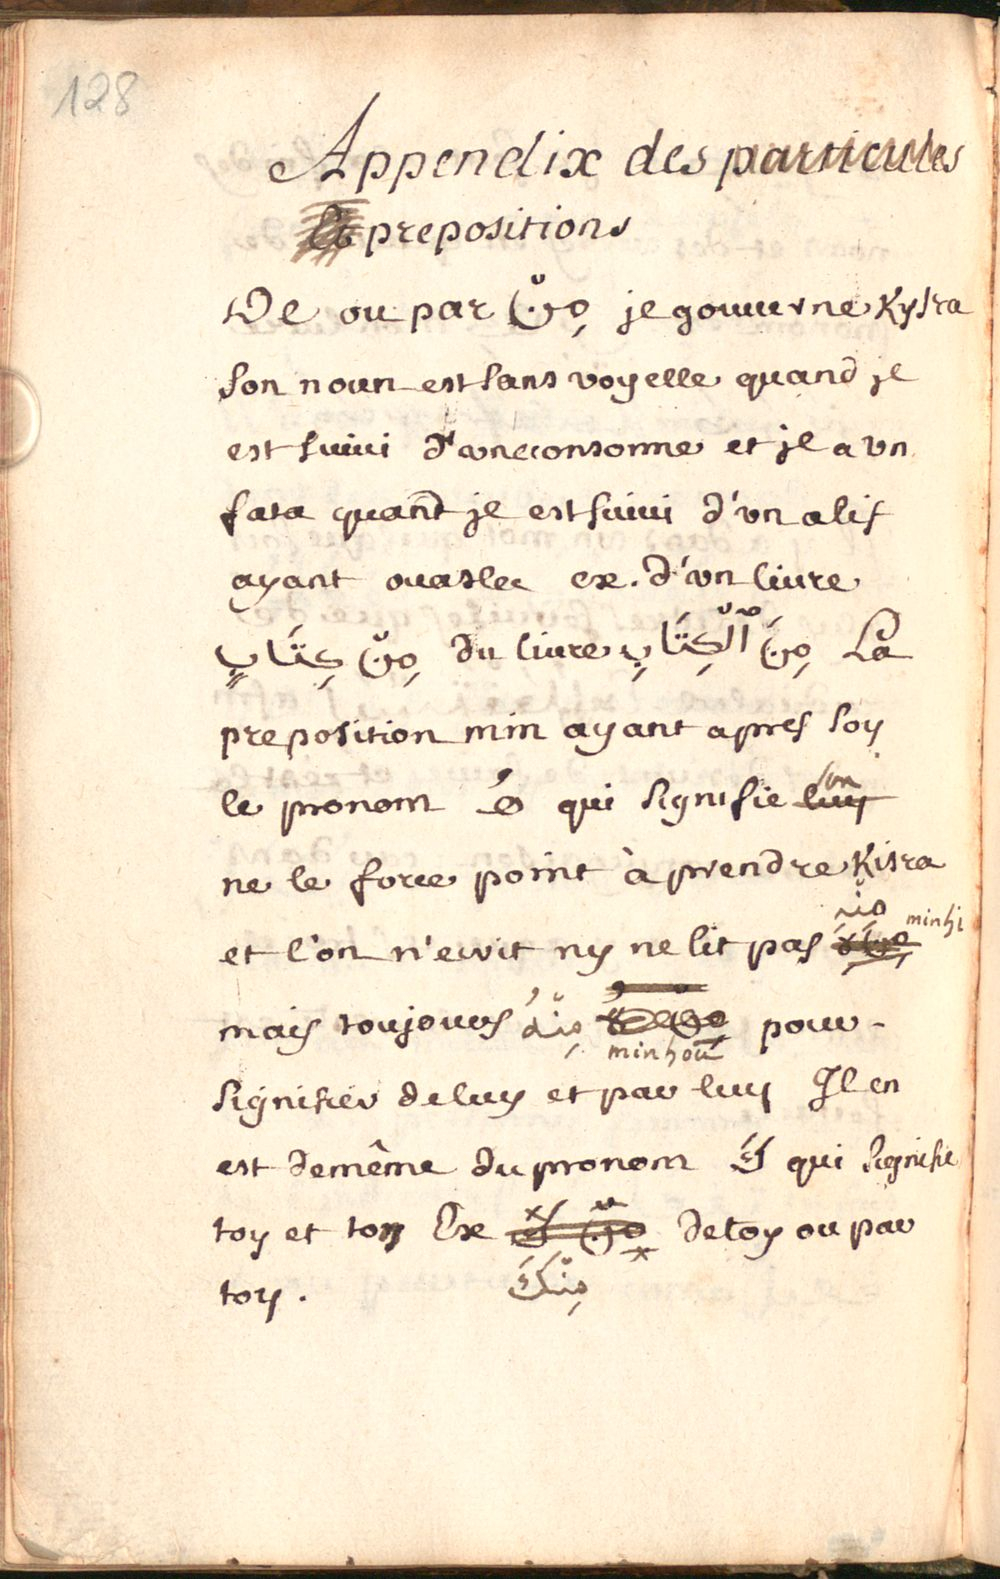 128
Appendix des particules
Et prepositions
De ou par مِنْ je gouuerne Kysra
son noun est sans voyelle quand jl
est suiui d'vne consonne et jl a vn
fata quand jl est suiui d'vn alif
ayant ouaslec ex. d'vn liure
مِنْ كِتَابٍ du liure مِنَ ٱلْكِتَابِ La
preposition min ayant apres soy
le pronom هُ qui signifie luy son
ne le force point à prendre Kisra
et l'on n'ecrit ny ne lit pas مِنْهِ minhi
mais toujours مِنْهُ minhou pour
signifier de luy et par luy Jl en
est de même du pronom كَ qui signifie
toy et ton Ex مِنْ كَ de toy ou par
toy. مِنْكَ